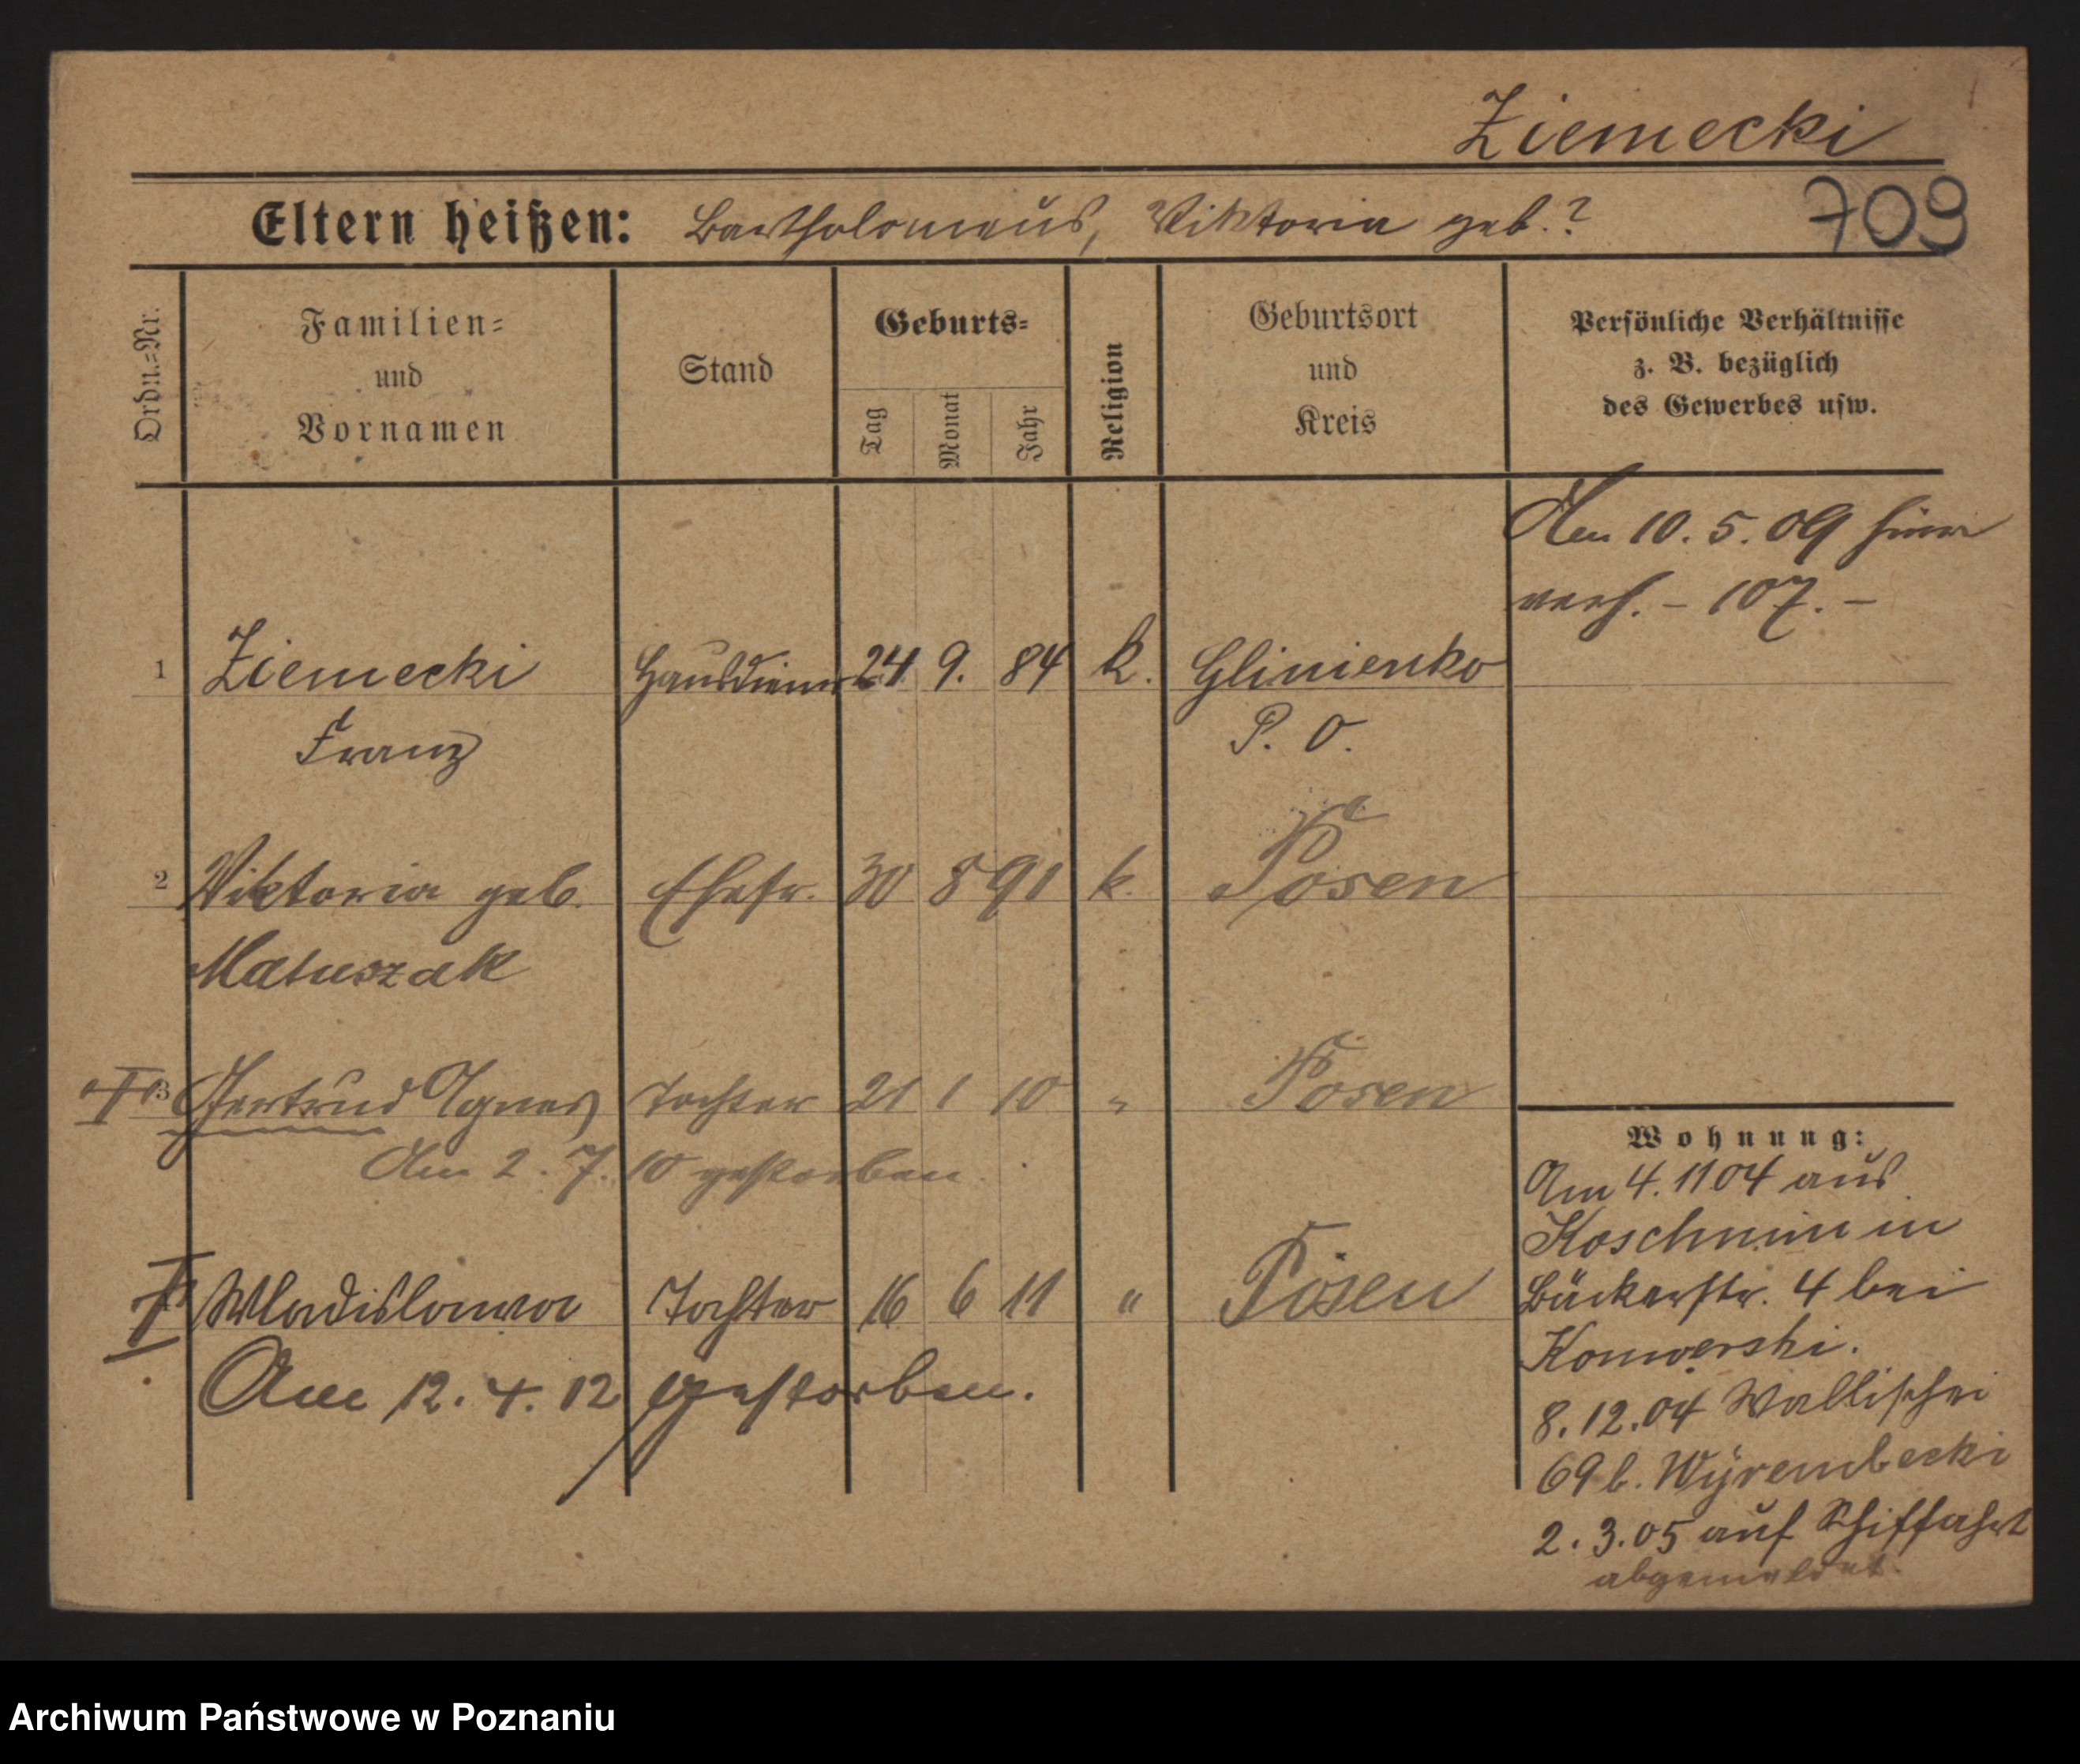 Ziemecki
709
Eltern heißen: Bartholomeus, Viktoria geb. ?
Ordn.=Nr.
Familien=
und
Vornamen
Stand
Geburts=
Tag
Monat
Jahr
Religion
Geburtsort
und
Kreis
Persönliche Verhältnisse
z. B. bezüglich
des Gewerbes usw.
Am 10. 5. 09 hier
verh. – 107. –
1 Ziemecki Hausdiener 24 9. 84 k. Glinienko
Franz P. O.
2 Viktoria geb. Ehefr. 30 8 91 k. Posen
Matuszak
3 Gertrud Agnes Tochter 21 1 10 " Posen
Am 2. 7. 10 gestorben.
Wladislawa Tochter 16 6 11 " Posen
Am 12. 4. 12 gestorben.
Wohnung:
Am 4. 11 04 aus
Koschmin in
Bäckerstr. 4 bei
Komwerski.
8. 12. 04 Wallischei
69 b. Wyrembecki
2. 3. 05 auf Schiffahrt
abgemeldet.
Archiwum Państwowe w Poznaniu